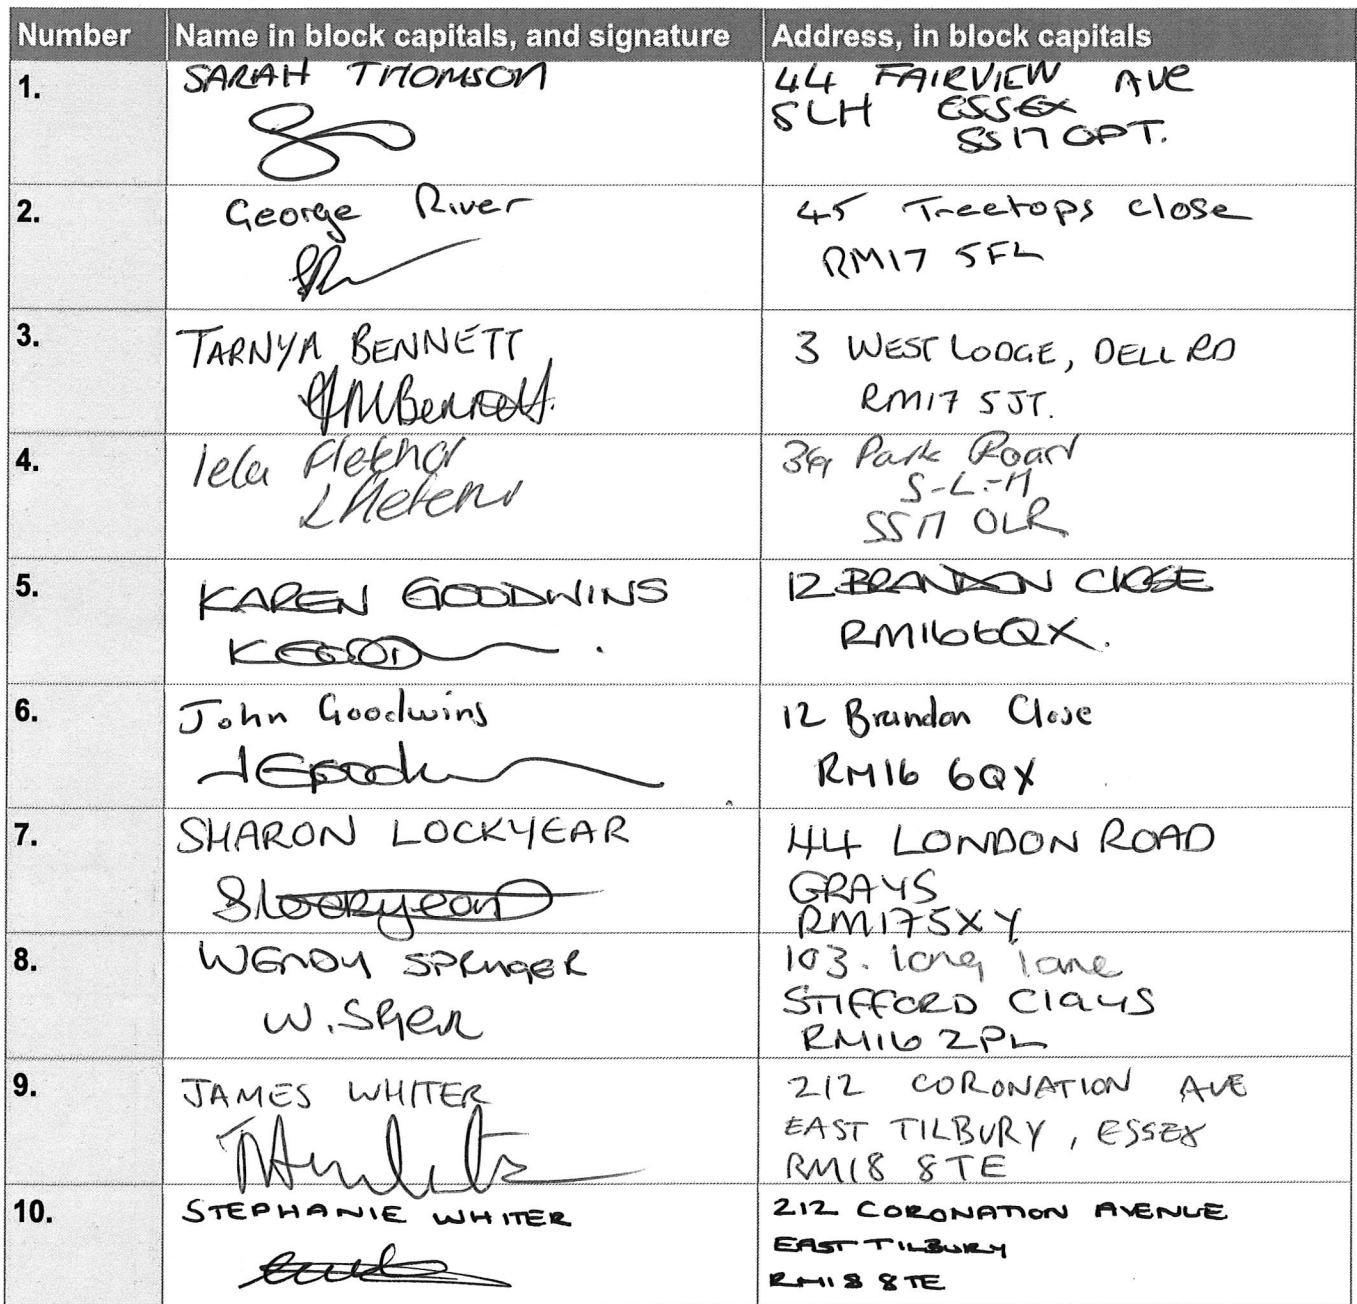 Number Name in block capitals, and signature Address, in block capitals
1. SARAH THOMSON 44 FAIRVIEW AVE
SLH ESSEX
SS17 0PT.
2. George River 45 Treetops close
RM17 5FL
3. TARNYA BENNETT 3 WEST LODGE, DELL RD
Bennett. RM17 5JT.
4. lela Fletcher 39 Park Road
S-L-H
SS17 0LR
5. KAREN GOODWINS 12 BRANDON ClOSE
RM166QX.
6. John Goodwins 12 Brandon Close
RM16 6QX
7. SHARON LOCKYEAR 44 LONDON ROAD
Slockyear GRAYS
RM175XY
8. WENDY SPRINGER 103. long lane
W. STIFFORD Clays
RM16 2PL
9. JAMES WHITER 212 CORONATION AVE
EAST TILBURY, ESSEX
RM18 8TE
10. STEPHANIE WHITER 212 CORONATION AVENUE
EAST TILBURY
RM18 8TE